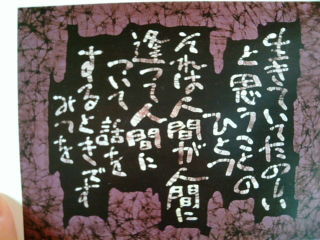 生きていてたのしい
と思うことの
ひとつ
それは人間が人間に
逢って人間に
ついて話を
するときです
みつを